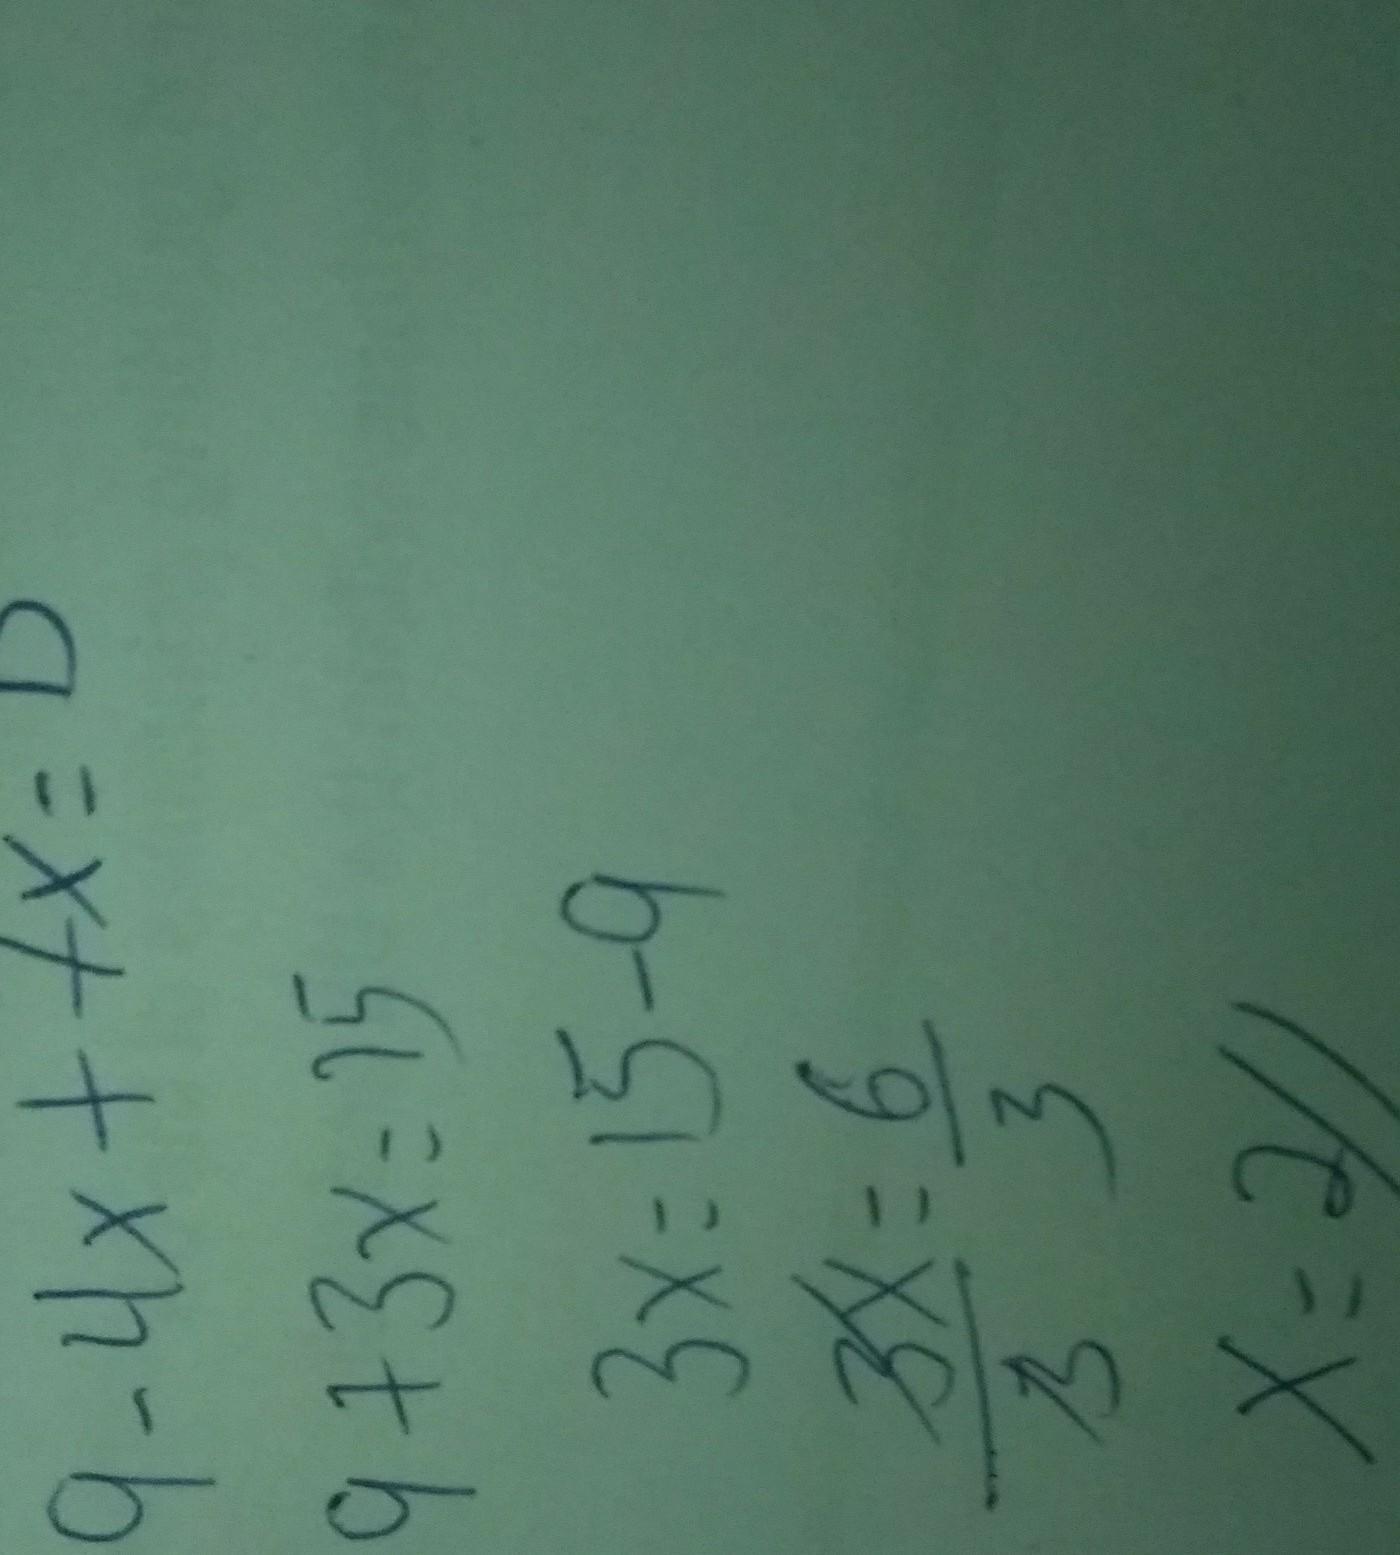 9 - 4x + 7x = D
9 + 3x = 15
3x = 15 - 9
3x/3 = 6/3
x = 2//